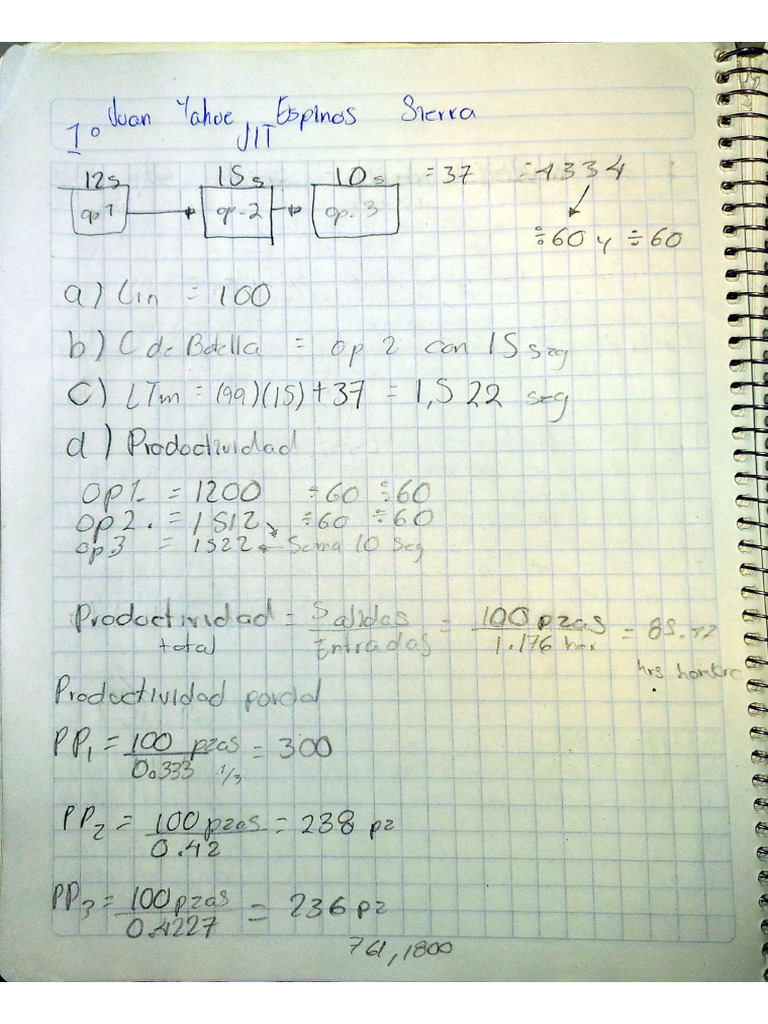 Juan Yahve Espinos Sierra
1° JIT
12s 15s 10s = 37 = 4334
op1 op-2 op. 3
÷60 y ÷60
a) Lin = 100
b) C de Botella = op 2 con 15 seg
c) LTm = (99)(15) + 37 = 1,522 seg
d) Productividad
op1. = 1200 ÷60 ÷60
op2. = 1512 ÷60 ÷60
op3 = 1522 Suma 10 seg
Productividad = Salidas = 100 pzas = 85.
total Entradas 1.176 hrs
hrs hombre
Productividad parcial
PP1 = 100 pzas = 300
0.333 1/3
PP2 = 100 pzas = 238 pz
0.42
PP3 = 100 pzas = 236 pz
0.4227
761,1800